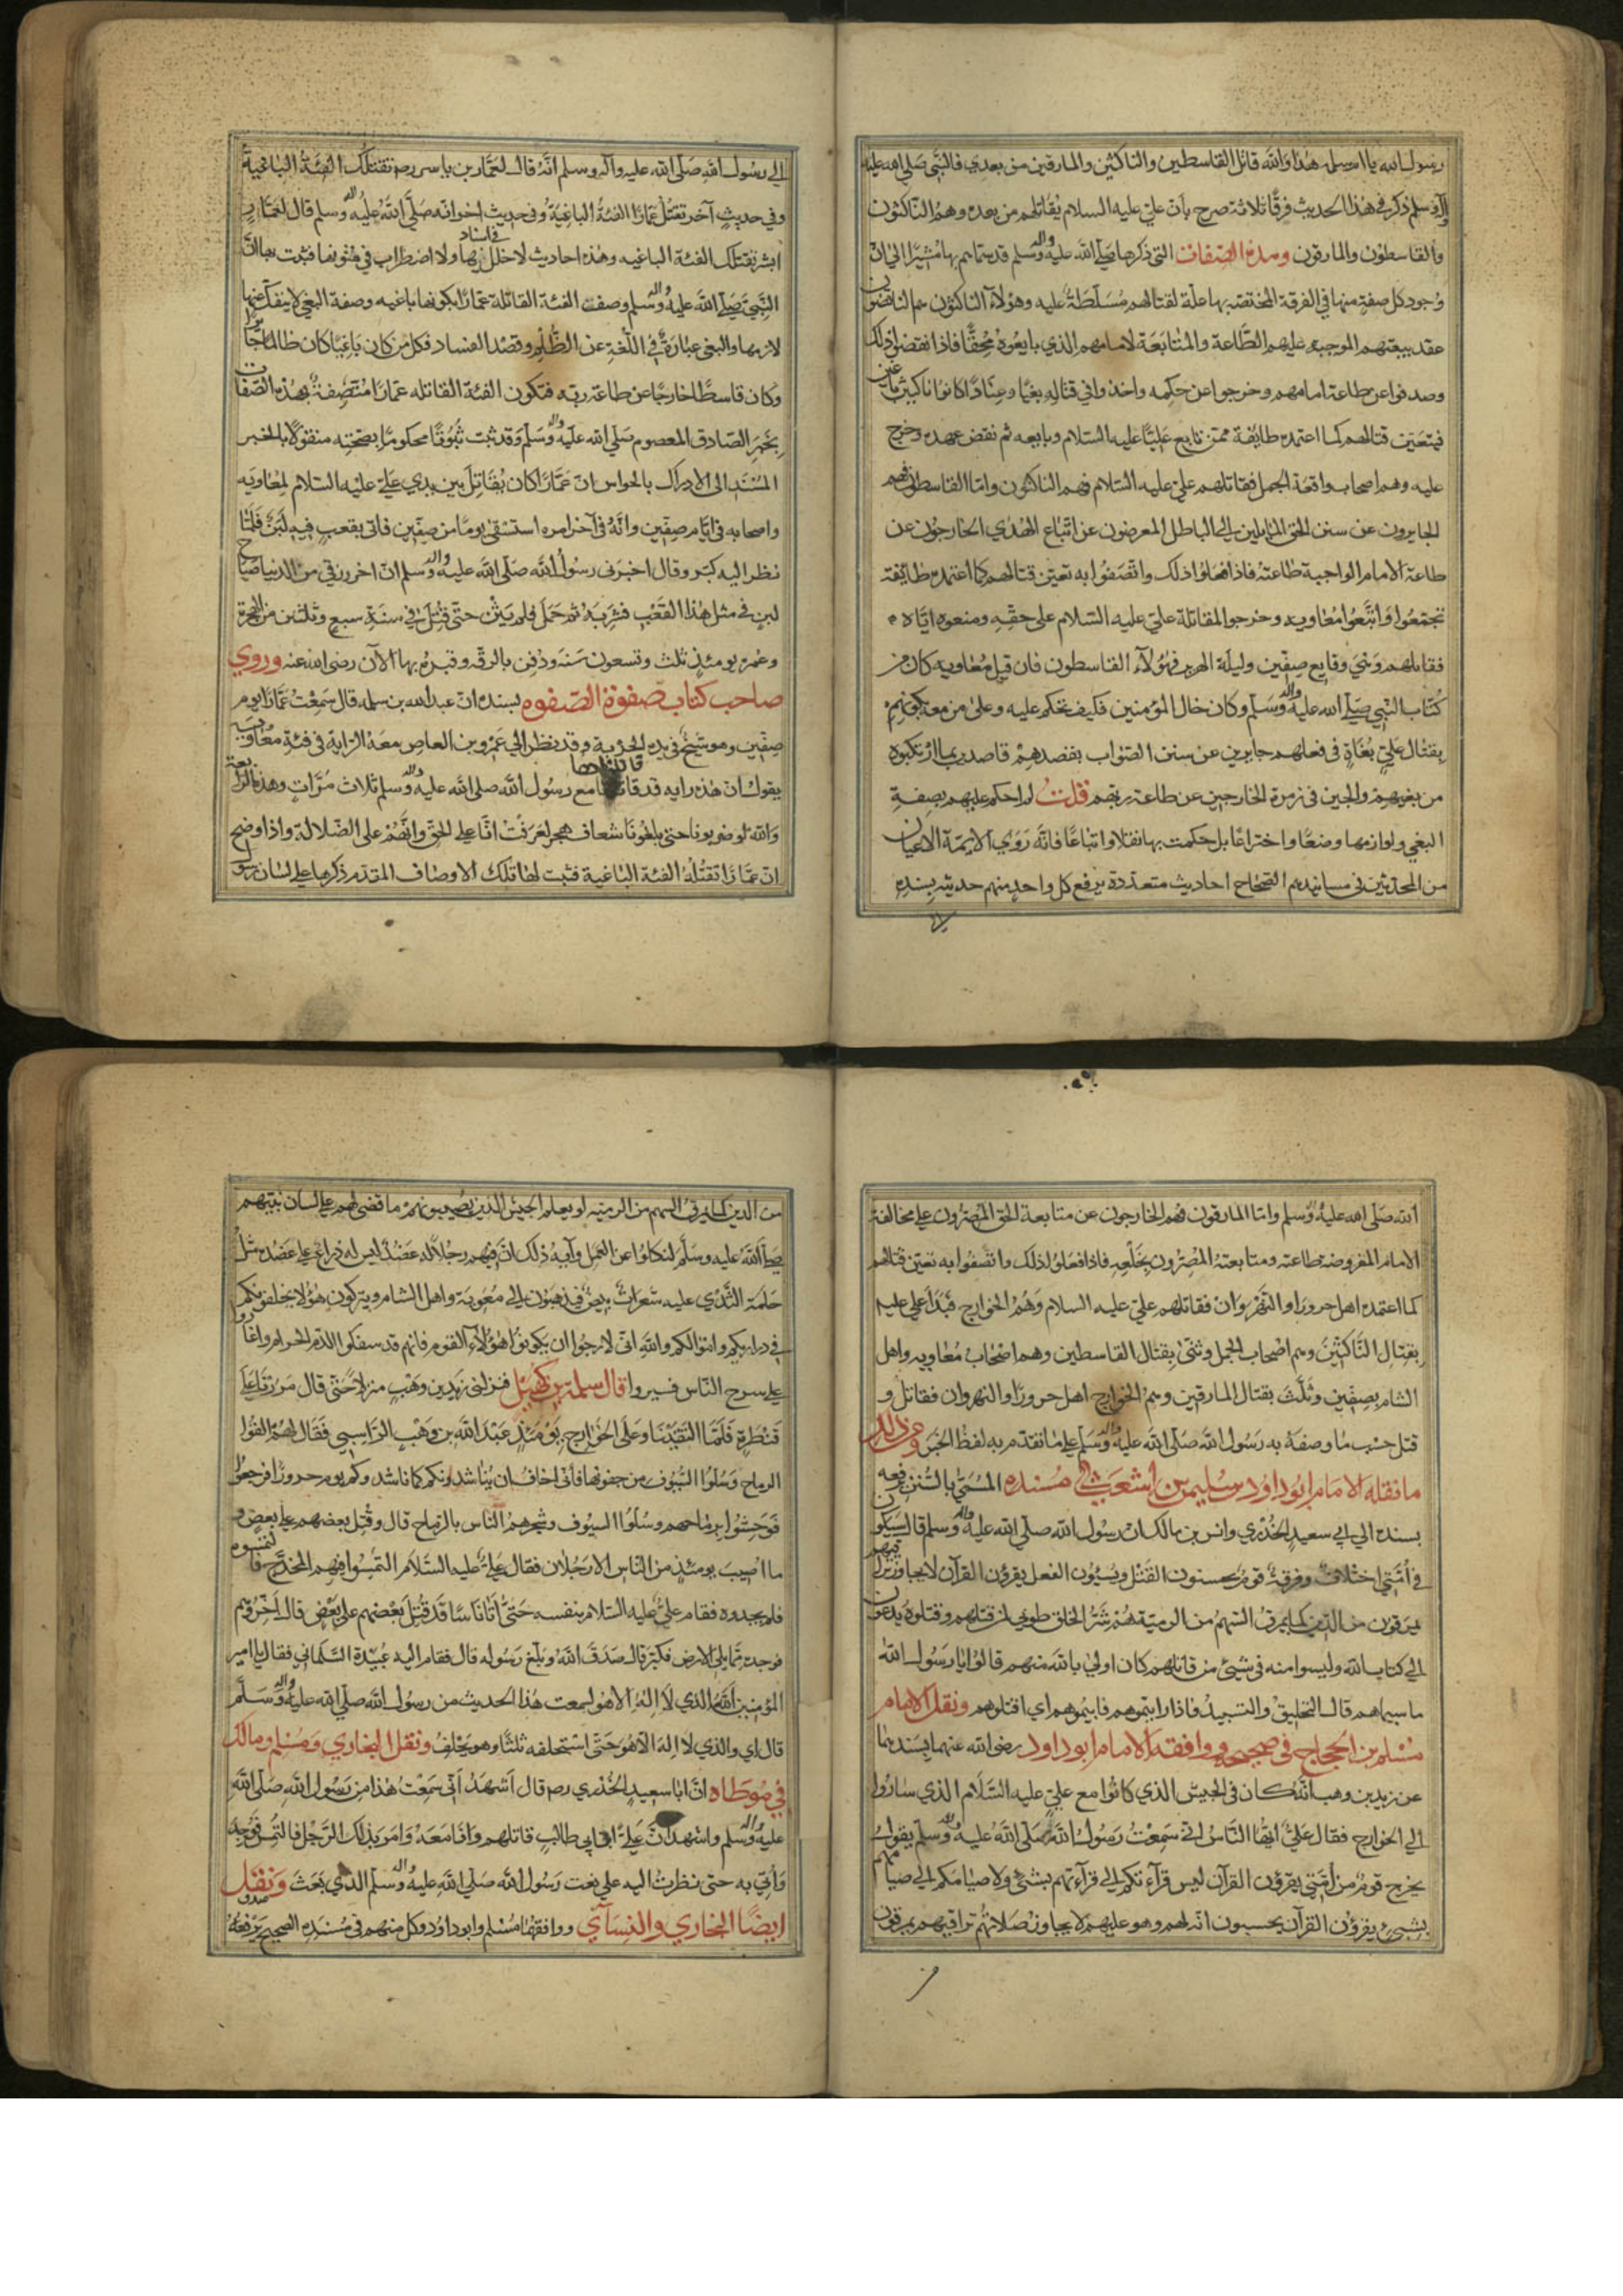 رسول الله يا ام سلمه هذا والله قاتل القاسطين والناكثين والمارقين من بعدي فالنبي صلى الله عليه
وآله وسلم ذكر في هذا الحديث فرقًا ثلاثة صرح بأن علي عليه السلام يقاتلهم من بعده وهم الناكثون
والقاسطون والمارقون وهذه الصفات التي ذكرها صلى الله عليه وآله وسلم قد سماهم بها مشيرًا الى ان
وجود كل صفة منها في الفرقة المختصة بها علة لقتالهم مسلطة عليه وهؤلاء الناكثون هم الناقضون
عقد بيعتهم الموجبة عليهم الطاعة والمتابعة لامامهم الذي بايعوه محقًا فاذا نقضوا ذلك
وصدفوا عن طاعة امامهم وخرجوا عن حكمه واخذوا في قتاله بغيًا وعنادًا كانوا ناكثين
فيتعين قتالهم كما اعتمده طايفة ممن تابع عليًا عليه السلام وبايعه ثم نقض عهده وخرج
عليه وهم اصحاب واقعة الجمل فقاتلهم علي عليه السلام فهم الناكثون واما القاسطون فهم
الجايرون عن سنن الحق المايلين الى الباطل المعرضون عن اتباع الهدى الخارجون عن
طاعة الامام الواجبة طاعته فاذا فعلوا ذلك واتصفوا به تعين قتالهم كما اعتمده طايفة
تجمعوا واتبعوا معاوية وخرجوا لمقاتلة علي عليه السلام على حقه ومنعوه اياه
فقاتلهم وهي وقايع صفين وليلة الهرير فهؤلاء القاسطون فان قيل معاوية كان من
كتاب النبي صلى الله عليه وآله وسلم وكان خال المؤمنين فكيف تحكم عليه وعلى من معه بكونهم
بقتال علي بغاة في فعلهم جايرين عن سنن الصواب بقصدهم قاصدين بما ارتكبوه
من بغيهم والجين في زمرة الخارجين عن طاعة ربهم قلت لم احكم عليهم بصفة
البغي ولوازمها وضعًا واختراعًا بل حكمت بها نقلا واتباعًا فانه روى الايمة الاعيان
من المحدثين في مسانيدهم الصحاح احاديث متعددة يرفع كل واحد منهم حديثه بسنده
الى رسول الله صلى الله عليه وآله وسلم انه قال لعمار بن ياسر رضه تقتلك الفئة الباغية
وفي حديث آخر تقتل عمارًا الفئة الباغية وفي حديث اخر انه صلى الله عليه وآله وسلم قال لعمار
ابشر تقتلك الفئة الباغيه وهذه احاديث لا خلل في اسنادها ولا اضطراب في متونها فثبت بها ان
النبي صلى الله عليه وآله وسلم وصف الفئة القاتلة عمارًا بكونها باغيه وصفة البغي لا ينفك عنها
لازمها والبغي عبارة في اللغة عن الظلم وقصد الفساد فكل من كان باغيًا كان ظالمًا جايرًا
وكان قاسطًا خارجًا عن طاعة ربه فتكون الفئة القاتله عمارًا متصفة بهذه الصفات
بخبر الصادق المعصوم صلى الله عليه وآله وسلم وقد ثبت ثبوتًا محكومًا بصحته منقولًا بالخبر
المسند الى الادراك بالحواس ان عمارًا كان يقاتل بين يدي علي عليه السلام لمعاويه
واصحابه في ايام صفين وانه في آخر امره استسقى يومًا من صفين فاتي بقعب فيه لبن فلما
نظر اليه كبر وقال اخبرني رسول الله صلى الله عليه وآله وسلم ان اخر رزقي من الدنيا ضياح
لبن في مثل هذا القعب فشربه ثم حمل فلم يثن حتى قتل في سنة سبع وثلثين من الهجرة
وعمره يومئذ ثلث وتسعون سنة ودفن بالرقه وقبره بها الآن رضي الله عنه وروي
صاحب كتاب صفوة الصفوه بسنده ان عبد الله بن سلمه قال سمعت عمارًا يوم
صفين وهو شيخ في يده الحربة وقد نظر الى عمرو بن العاص معه الراية في فئة معاوية
يقول ان هذه راية قد قاتلتها مع رسول الله صلى الله عليه وآله وسلم ثلاث مرات وهذه الرابعة
والله لو ضربونا حتى بلغونا شعاف هجر لعرفت انا على الحق وانهم على الضلالة واذا وضح
ان عمارًا تقتله الفئة الباغية فثبت لها تلك الاوصاف المقدم ذكرها على لسان رسول
الله صلى الله عليه وآله وسلم واما المارقون فهم الخارجون عن متابعة الحق المصرون على مخالفة
الامام المفروضة طاعته ومتابعته المصرون بخلعه فاذا فعلوا ذلك واتصفوا به تعين قتالهم
كما اعتمده اهل حرورا والنهروان فقاتلهم علي عليه السلام وهم الخوارج فبدأ علي عليه
بقتال الناكثين وهم اصحاب الجمل وثنى بقتال القاسطين وهم اصحاب معاويه واهل
الشام بصفين وثلث بقتال المارقين وهم الخوارج اهل حرورا والنهروان فقاتل و
قتل حسب ما وصفه به رسول الله صلى الله عليه وآله وسلم على ما تقدم به لفظ الخبر ومن ذلك
ما نقله الامام ابو داود سليمن بن اشعث في مسنده المسمى بالسنن يرفعه
بسنده الى ابي سعيد الخدري وانس بن مالك ان رسول الله صلى الله عليه وآله وسلم قال سيكون
في امتي اختلاف وفرقة قوم يحسنون القتل ويسيؤن الفعل يقرؤن القرآن لا يجاوز تراقيهم
يمرقون من الدين كما يمرق السهم من الرمية هم شر الخلق طوبى لمن قتلهم وقتلوه يدعون
الى كتاب الله وليسوا منه في شيئ من قاتلهم كان اولى بالله منهم قالوا يا رسول الله
ما سيماهم قال التحليق والتسبيد فاذا رايتموهم فانيموهم اي اقتلوهم ونقل الامام
مسلم بن الحجاج في صحيحه ووافقه الامام ابو داود رضي الله عنهما بسندهما
عن زيد بن وهب انه كان في الجيش الذي كانوا مع علي عليه السلام الذي ساروا
الى الخوارج فقال علي ايها الناس اني سمعت رسول الله صلى الله عليه وآله وسلم يقول
يخرج قوم من امتي يقرؤن القرآن ليس قرآءتكم الى قرآءتهم بشئ ولا صيامكم الى صيامهم
بشيئ يقرؤن القرآن يحسبون انه لهم وهو عليهم لا يجاوز صلاتهم تراقيهم يمرقون
من الدين كما يمرق السهم من الرميه لو يعلم الجيش الذين يصيبونهم ما قضى لهم على لسان نبيهم
صلى الله عليه وسلم لنكلوا عن العمل وآية ذلك ان فيهم رجلا له عضد ليس له ذراع على عضده مثل
حلمة الثدي عليه شعرات بيض فيذهبون الى معوية واهل الشام ويتركون هؤلا يخلفونكم
في دراريكم واموالكم والله اني لارجوا ان يكونوا هؤلاء القوم فانهم قد سفكوا الدم الحرام واغاروا
على سرح الناس فسيروا قال سلمة بن كهيل فنزلني زيد بن وهب منزلا حتى قال مررنا على
قنطرة فلما التقينا وعلى الخوارج يومئذ عبد الله بن وهب الراسبي فقال لهم القوا
الرماح وسلوا السيوف من جفونها فاني اخاف ان يناشدونكم كما ناشدوكم يوم حرورا فرجعوا
فوحشوا برماحهم وسلوا السيوف وشجرهم الناس بالرماح قال وقتل بعضهم على بعض و
ما اصيب يومئذ من الناس الا رجلان فقال علي عليه السلام التمسوا فيهم المخدج فالتمسوه
فلم يجدوه فقام علي عليه السلام بنفسه حتى اتى اناسًا قد قتل بعضهم على بعض قال اخروهم
فوجده مما يلي الارض فكبر قال صدق الله وبلغ رسوله قال فقام اليه عبيدة السلماني فقال يا امير
المؤمنين آلله الذي لا اله الا هو لسمعت هذا الحديث من رسول الله صلى الله عليه وآله وسلم
قال اي والذي لا اله الا هو حتى استحلفه ثلثًا وهو يحلف ونقل البخاري ومسلم ومالك
في موطاه ان ابا سعيد الخدري رضه قال اشهد اني سمعت هذا من رسول الله صلى الله
عليه وآله وسلم واشهد ان علي ابن ابي طالب قاتلهم وانا معه وامر بذلك الرجل فالتمس فوجد
وأتي به حتى نظرت اليه على نعت رسول الله صلى الله عليه وآله وسلم الذي بعت ونقل
ايضًا البخاري والنسآئي ووافقهما مسلم وابو داود وكل منهم في مسنده الصحيح يرفعه